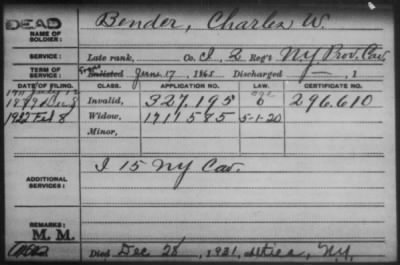 DEAD
NAME OF SOLDIER:
Bender, Charles W.
SERVICE:
Late rank, Co. I, 2 Reg't NY Prov. Cav.
TERM OF SERVICE:
Enlisted June 17, 1865 Discharged , 1
DATE OF FILING. CLASS. APPLICATION NO. LAW. CERTIFICATE NO.
1879 Invalid, 327.195 296.610
Feb 8 Widow, 1711575 5-1-20
Minor,
ADDITIONAL SERVICES:
I 15 NY Cav.
REMARKS:
M. M.
Died Dec , 1921, Utica, NY.